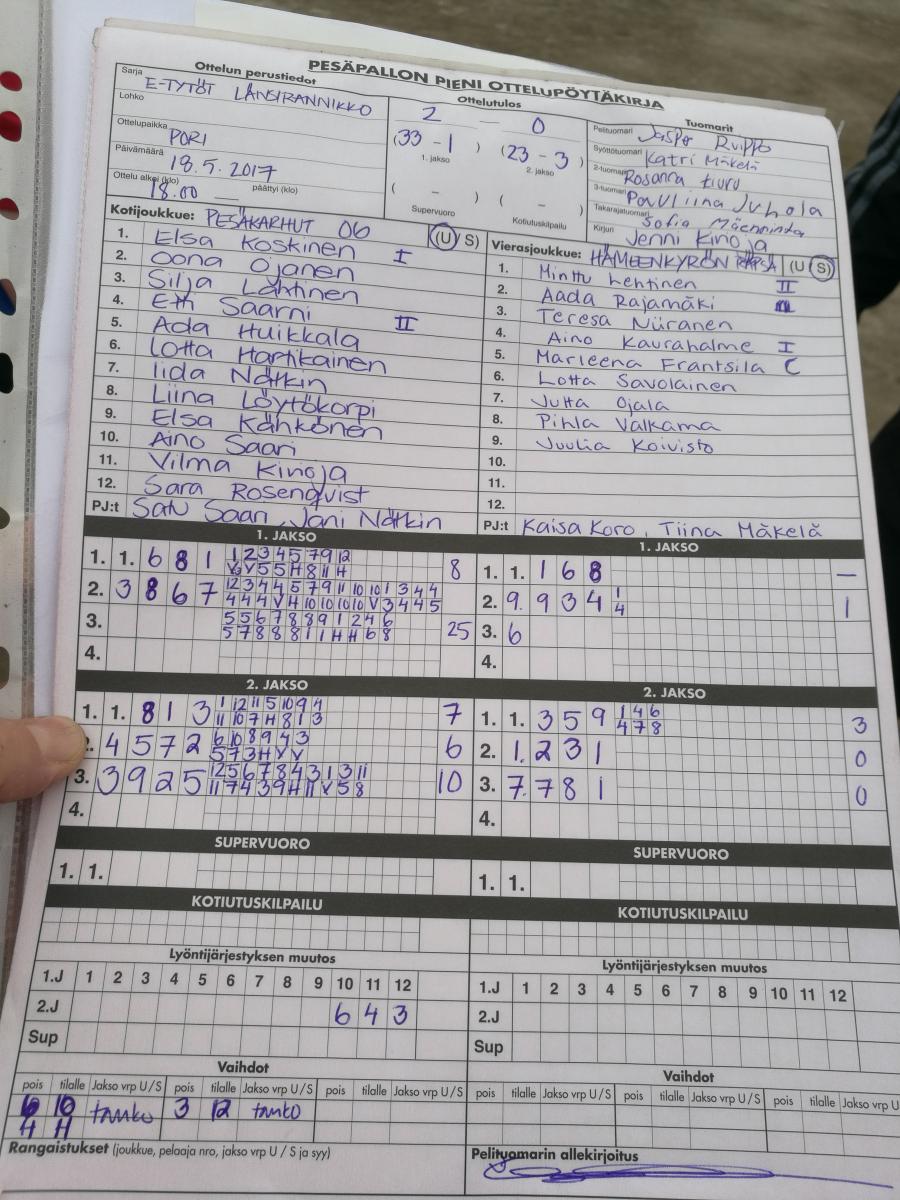 PESÄPALLON PIENI OTTELUPÖYTÄKIRJA
Ottelun perustiedot
Sarja E-TYTÖT LÄNSIRANNIKKO
Lohko
Ottelupaikka PORI
Päivämäärä 18.5.2017
Ottelu alkoi (klo) 18.00 päättyi (klo)
Ottelutulos
2 — 0
(33 - 1) (23 - 3)
1. jakso 2. jakso
( - ) ( - )
Supervuoro Kotiutuskilpailu
Tuomarit
Pelituomari Jaspo Ruippo
Syöttötuomari Katri Mäkelä
2-tuomari Rosanna
3-tuomari Pauliina Juhola
Takarajatuomari Sofia
Kirjuri Jenni Kinoja
Kotijoukkue: PESÄKARHUT 06 (U/S)
1. Elsa Koskinen I
2. Oona Ojanen
3. Silja Lahtinen
4. Eth Saarni
5. Ada Huikkala II
6. Lotta Hartikainen
7. Iida Nätkin
8. Liina Löytökorpi
9. Elsa Kähkönen
10. Aino Saari
11. Vilma Kivioja
12. Sara Rosenqvist
PJ:t Satu Saari, Jani Nätkin
Vierasjoukkue: HÄMEENKYRÖN (U/S)
1. Minttu Lehtinen II
2. Aada Rajamäki
3. Teresa Niiranen
4. Aino Kauraholme I
5. Marleena Frantsila C
6. Lotta Savolainen
7. Jutta Ojala
8. Pihla Valkama
9. Juulia Koivisto
10.
11.
12.
PJ:t Kaisa Koro, Tiina Mäkelä
1. JAKSO
1. 1. 6 8 1 1 2 3 4 5 7 9 12 8
5 5 H 8 11 H
2. 3 8 6 7 12 3 4 4 5 7 9 11 10 10 1 3 4 4
4 4 4 V H 10 10 10 10 V 3 4 4 5
3. 5 5 6 7 8 8 9 1 2 4 6 25
5 7 8 8 8 1 1 H H 6 8
4.
1. JAKSO
1. 1. 1 6 8 —
2. 9. 9 3 4 1 1
4
3. 6
4.
2. JAKSO
1. 1. 8 1 3 1 12 11 5 10 9 4 7
11 10 7 H 8 1 3
2. 4 5 7 2 6 10 8 9 4 3 6
5 7 3 H V V
3. 3 9 2 5 12 5 6 7 8 4 3 1 3 11 10
11 7 4 3 9 H 11 V 5 8
4.
2. JAKSO
1. 1. 3 5 9 1 4 6 3
4 7 8
2. 1. 2 3 1 0
3. 7. 7 8 1 0
4.
SUPERVUORO
1. 1.
SUPERVUORO
1. 1.
KOTIUTUSKILPAILU
KOTIUTUSKILPAILU
Lyöntijärjestyksen muutos
1.J 1 2 3 4 5 6 7 8 9 10 11 12
2.J 6 4 3
Sup
Lyöntijärjestyksen muutos
1.J 1 2 3 4 5 6 7 8 9 10 11 12
2.J
Sup
Vaihdot
pois tilalle Jakso vrp U/S pois tilalle Jakso vrp U/S pois tilalle Jakso vrp U/S
6 10 tanko 3 12 tanko
H H
Vaihdot
pois tilalle Jakso vrp U/S pois tilalle Jakso vrp U/S pois tilalle Jakso vrp U
Rangaistukset (joukkue, pelaaja nro, jakso vrp U / S ja syy)
Pelituomarin allekirjoitus